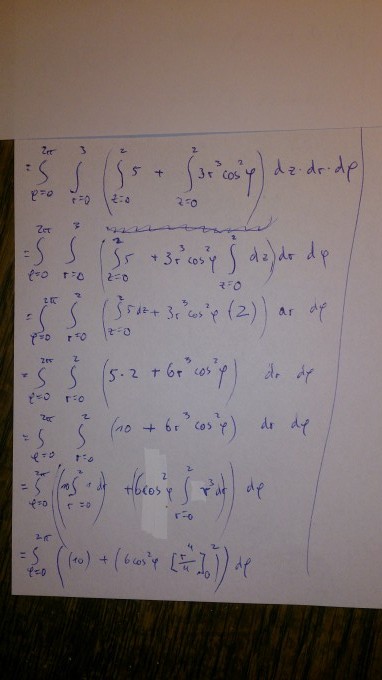 = ∫_{φ=0}^{2π} ∫_{r=0}^{3} ( ∫_{z=0}^{2} 5 + ∫_{z=0}^{2} 3r³cos²φ ) dz·dr·dφ
= ∫_{φ=0}^{2π} ∫_{r=0}^{3} ( ∫_{z=0}^{2} 5 + 3r³cos²φ ∫_{z=0}^{2} dz ) dr dφ
= ∫_{φ=0}^{2π} ∫_{r=0}^{2} ( ∫_{z=0}^{2} 5dz + 3r³cos²φ (2) ) dr dφ
= ∫_{φ=0}^{2π} ∫_{r=0}^{2} ( 5·2 + 6r³cos²φ ) dr dφ
= ∫_{φ=0}^{2π} ∫_{r=0}^{2} ( 10 + 6r³cos²φ ) dr dφ
= ∫_{φ=0}^{2π} ( ( 10 ∫_{r=0}^{2} 1 dr ) + ( 6cos²φ ∫_{r=0}^{2} r³dr ) ) dφ
= ∫_{φ=0}^{2π} ( (10) + ( 6cos²φ [r⁴/4]_{0}^{2} ) ) dφ